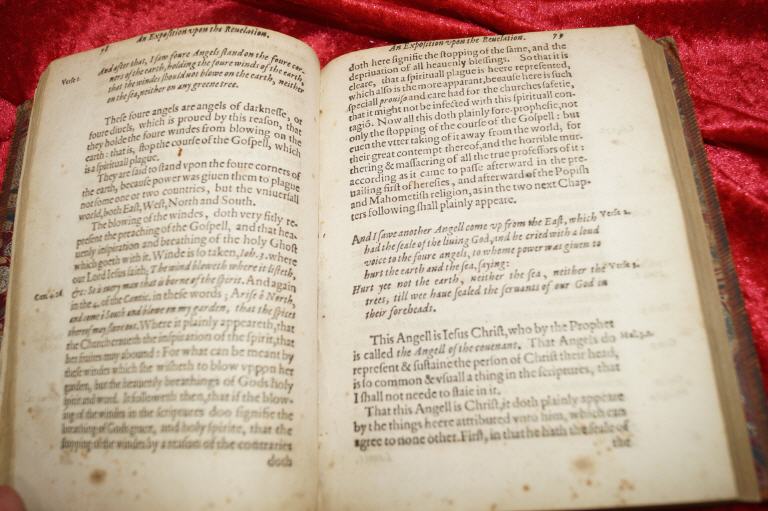 78 An Expoſition vpon the Reuelation.
And after that, I ſaw foure Angels ſtand on the foure cor-
Verſe 1. ners of the earth, holding the foure winds of the earth,
that the winds ſhould not blowe on the earth, neither
on the ſea, neither on any greene tree.
Theſe foure angels are angels of darkneſſe, or
foure diuels, which is proued by this reaſon, that
they holde the foure windes from blowing on the
earth: that is, ſtop the courſe of the Goſpell, which
is a ſpirituall plague.
They are ſaid to ſtand vpon the foure corners of
the earth, becauſe power was giuen them to plague
not ſome one or two countries, but the vniuerſall
world, both Eaſt, Weſt, North and South.
The blowing of the windes, doth very fitly re-
preſent the preaching of the Goſpell, and that hea-
uenly inſpiration and breathing of the holy Ghoſt
which goeth with it. Winde is ſo taken, Ioh. 3. where
our Lord Ieſus ſaith, The wind bloweth where it liſteth,
&c: So is euery man that is borne of the ſpirit. And again
in the 4. of the Cantic. in theſe words; Ariſe ô North,
and come ô South and blowe on my garden, that the ſpices
thereof may flow out. Where it plainly appeareth, that
the Church craueth the inſpiration of the ſpirit, that
her fruites may abound: For what can be meant by
theſe windes which ſhe wiſheth to blow vpon her
garden, but the heauenly breathings of Gods holy
ſpirit and word. It followeth then, that if the blow-
ing of the windes in the ſcriptures doo ſignifie the
breathing of Gods grace, and holy ſpirite, that the
ſtopping of the windes by a reaſon of the contraries
doth
An Expoſition vpon the Reuelation. 79
doth here ſignifie the ſtopping of the ſame, and the
depriuation of all heauenly bleſſings. So that it is
cleare, that a ſpirituall plague is heere repreſented,
which alſo is the more apparant, becauſe here is ſuch
ſpeciall prouiſo and care had for the churches ſafetie,
that it might not be infected with this ſpirituall con-
tagiō. Now all this doth plainly fore-propheſie, not
only the ſtopping of the courſe of the Goſpell: but
euen the vtter taking of it away from the world, for
their great contempt thereof, and the horrible mur-
thering & maſſacring of all the true profeſſors of it:
according as it came to paſſe afterward in the pre-
uailing firſt of hereſies, and afterward of the Popiſh
and Mahometiſh religion, as in the two next Chap-
ters following ſhall plainly appeare.
And I ſaw another Angell come vp from the Eaſt, which Verſe 2.
had the ſeale of the liuing God, and he cried with a loud
voice to the foure angels, to whome power was giuen to
hurt the earth and the ſea, ſaying:
Hurt yee not the earth, neither the ſea, neither the Verſe 3.
trees, till wee haue ſealed the ſeruants of our God in
their foreheads.
This Angell is Ieſus Chriſt, who by the Prophet
is called the Angell of the couenant. That Angels do
repreſent & ſuſtaine the perſon of Chriſt their head,
is ſo common & vſuall a thing in the ſcriptures, that
I ſhall not neede to ſtaie in it.
That this Angell is Chriſt, it doth plainly appeare
by the things heere attributed vnto him, which can
agree to none other. Firſt, in that he hath the ſeale of
the